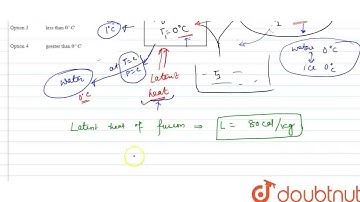 Option 3 less than 0°C
Option 4 greater than 0°C
1°C
T=0°C
2
at
T=C
P=C
Latent
heat
water
0°C
- 5
water 0°C
ice 0°C
Latent heat of fusion ⇒ L = 80 cal/kg
doubtnut